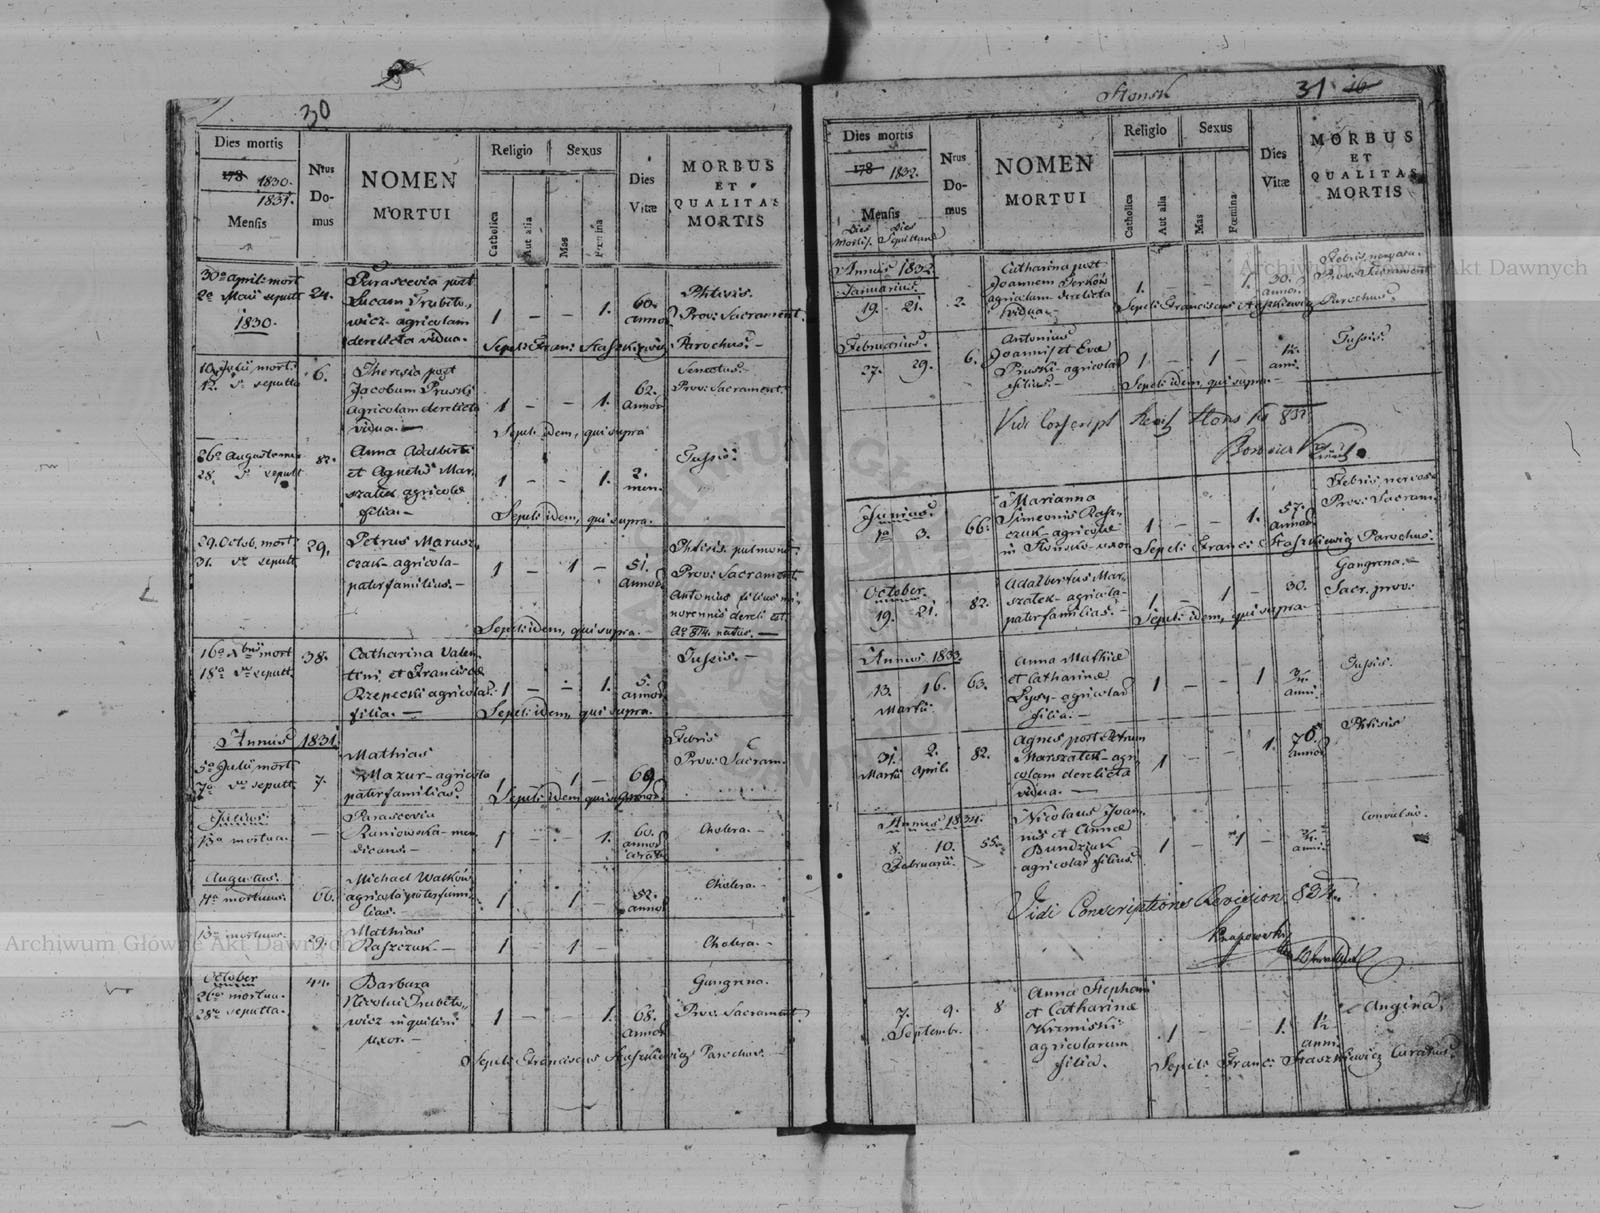 30
Dies mortis
178 1830.
1831.
Mensis
Nrus
Do-
mus
NOMEN
MORTUI
Religio
Sexus
Catholica
Aut alia
Mas
Fœmina
Dies
Vitæ
MORBUS
ET
QUALITAS
MORTIS
30a April: mort
2a Maii sepult
1830.
24.
Parascevia post
Lucam
wicz agricolam
derelicta vidua.
1 - - 1.
60.
annor
Phtisis.
Prov: Sacrament.
Sepel: Fran: Staszkiewicz Parochus. -
10a Julii mort.
12. sepulta
6.
Theresia post
Jacobum Pruski
agricolam derelicta
vidua. -
1 - - 1.
62.
annor
Senectus. -
Prov: Sacrament.
Sepeli: idem, qui supra
26a Augusti
28. sepult
82.
Anna Adalberti
et Agnetis Mar-
szałek agricolæ
filia. -
1 - - 1.
2.
men.
Tussis.
Sepeli: idem, qui supra.
29. Octob. mort
31. sepult
29.
Petrus Marusz-
czak - agricola -
paterfamilias. -
1 - 1 -
51.
annor
Phtisis pulmon:
Prov: Sacrament.
Antonius filius mi-
norennis dereli: est.
Ao 814. natus. -
Sepeli: idem, qui supra. -
16a Xbris mort
18a sepult
38.
Catharina Valen-
tini et Franciscæ
Rzepecki agricolar.
filia. -
1 - - 1.
5.
annor
Tussis. -
Sepeli: idem, qui supra.
Annus 1831.
5a Julii mort
7a sepult
7.
Mathias
Mazur - agricola
paterfamilias.
1 - 1 -
69
annor
Febris
Prov: Sacram.
Sepeli: idem qui supra
Julius.
13a mortua.
-
Parascevia
Raniowska - men-
dicans. -
1 - - 1.
60.
annor
Cholera. -
Augustus.
11a mortuus.
66.
Michael Watków
agricola paterfami-
lias.
1 1 -
52.
annor
Cholera. -
13a mortuus.
29.
Mathias
Raszczuk. -
1 - 1 -
Cholera. -
October
26a mortua.
28a sepulta.
44.
Barbara
Nicolai
wicz inquilini
uxor. -
1 - - 1.
68.
annor
Gangrena.
Prov: Sacrament.
Sepeli: Franciscus Staszkiewicz Parochus. -
Stonsk
31 16
Dies mortis
178 1832.
Mensis
Dies Dies
Mortis. Sepulturæ
Nrus
Do-
mus
NOMEN
MORTUI
Religio
Sexus
Catholica
Aut alia
Mas
Fœmina
Dies
Vitæ
MORBUS
ET
QUALITAS
MORTIS
Annus 1832.
Januarius.
19. 21.
2.
Catharina post
Joannem
agricolam derelicta
vidua. -
1. - - 1.
30.
annor.
Febris nervosa.
Prov: Sacrament
Sepeli: Franciscus Staszkiewicz Parochus.
Februarius.
27. 29.
6.
Antonius
Joannis et Evæ
Pruski - agricolar
filius. -
1 - 1 -
anni.
Tussis.
Sepeli: idem, qui supra. -
Vidi Conscript Revis Stonsk 832
Junius.
1a 3.
66.
Marianna
Simeonis Rasz-
czuk - agricolæ
in Stonsko - uxor
1 - - 1.
57.
annor
Febris nervosa
Prov: Sacram:
Sepeli: Franc: Staszkiewicz Parochus.
October.
19. 21.
82.
Adalbertus Mar-
szałek - agricola -
paterfamilias. -
1 - 1 -
30.
Gangrena. -
Sacr. prov.
Sepeli: idem, qui supra -
Annus 1833.
13. 16.
Martii
63.
Anna Mathiæ
et Catharinæ
Łysy - agricolar
filia. -
1 - - 1
anni.
Tussis.
31. 2.
Martii April.
82.
Agnes post Petrum
Marszałek - agri-
colam derelicta
vidua. -
1 - - 1.
76.
annor
Phtisis
Annus 1834.
8. 10.
Februarii.
55.
Nicolaus Joan-
nis et Annæ
Bundziuk
agricolar filius
1 - 1 -
anni.
Convulsio.
Vidi Conscriptiones Revision 834.
7. 9.
Septemb.
8
Anna Stephani
et Catharinæ
Krzmiski
agricolarum
filia.
1 - - 1.
1½
anni
Angina.
Sepeli: Franc: Staszkiewicz Curatus.
Archiwum Główne Akt Dawnych
Archiwum Główne Akt Dawnych